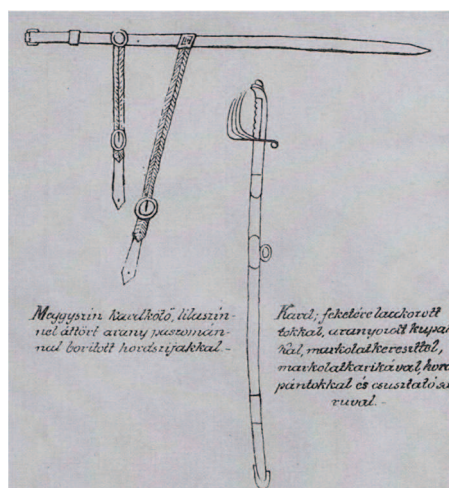 Meggyszín kardkötő, lilaszín-
nel áttört arany paszomán-
nal borított hordszíjakkal.-
Kard; feketére lackozott
tokkal, aranyozott kupak
kal, markolatkereszttel,
markolatkarikával, hord
pántokkal és csusztatósa
ruval.-